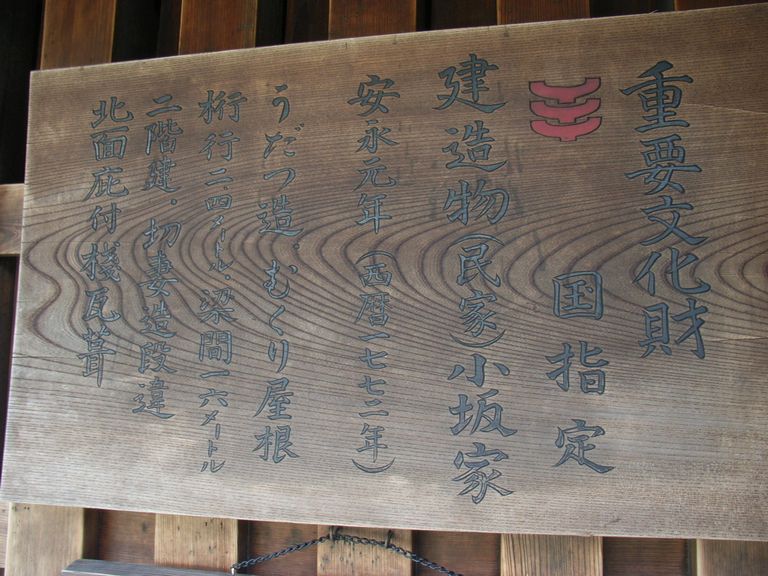 重要文化財
国指定
建造物(民家)小坂家
安永元年(西暦一七七二年)
うだつ造・むくり屋根
桁行二・四メートル・梁間一六メートル
二階建・切妻造段違
北面庇付桟瓦葺